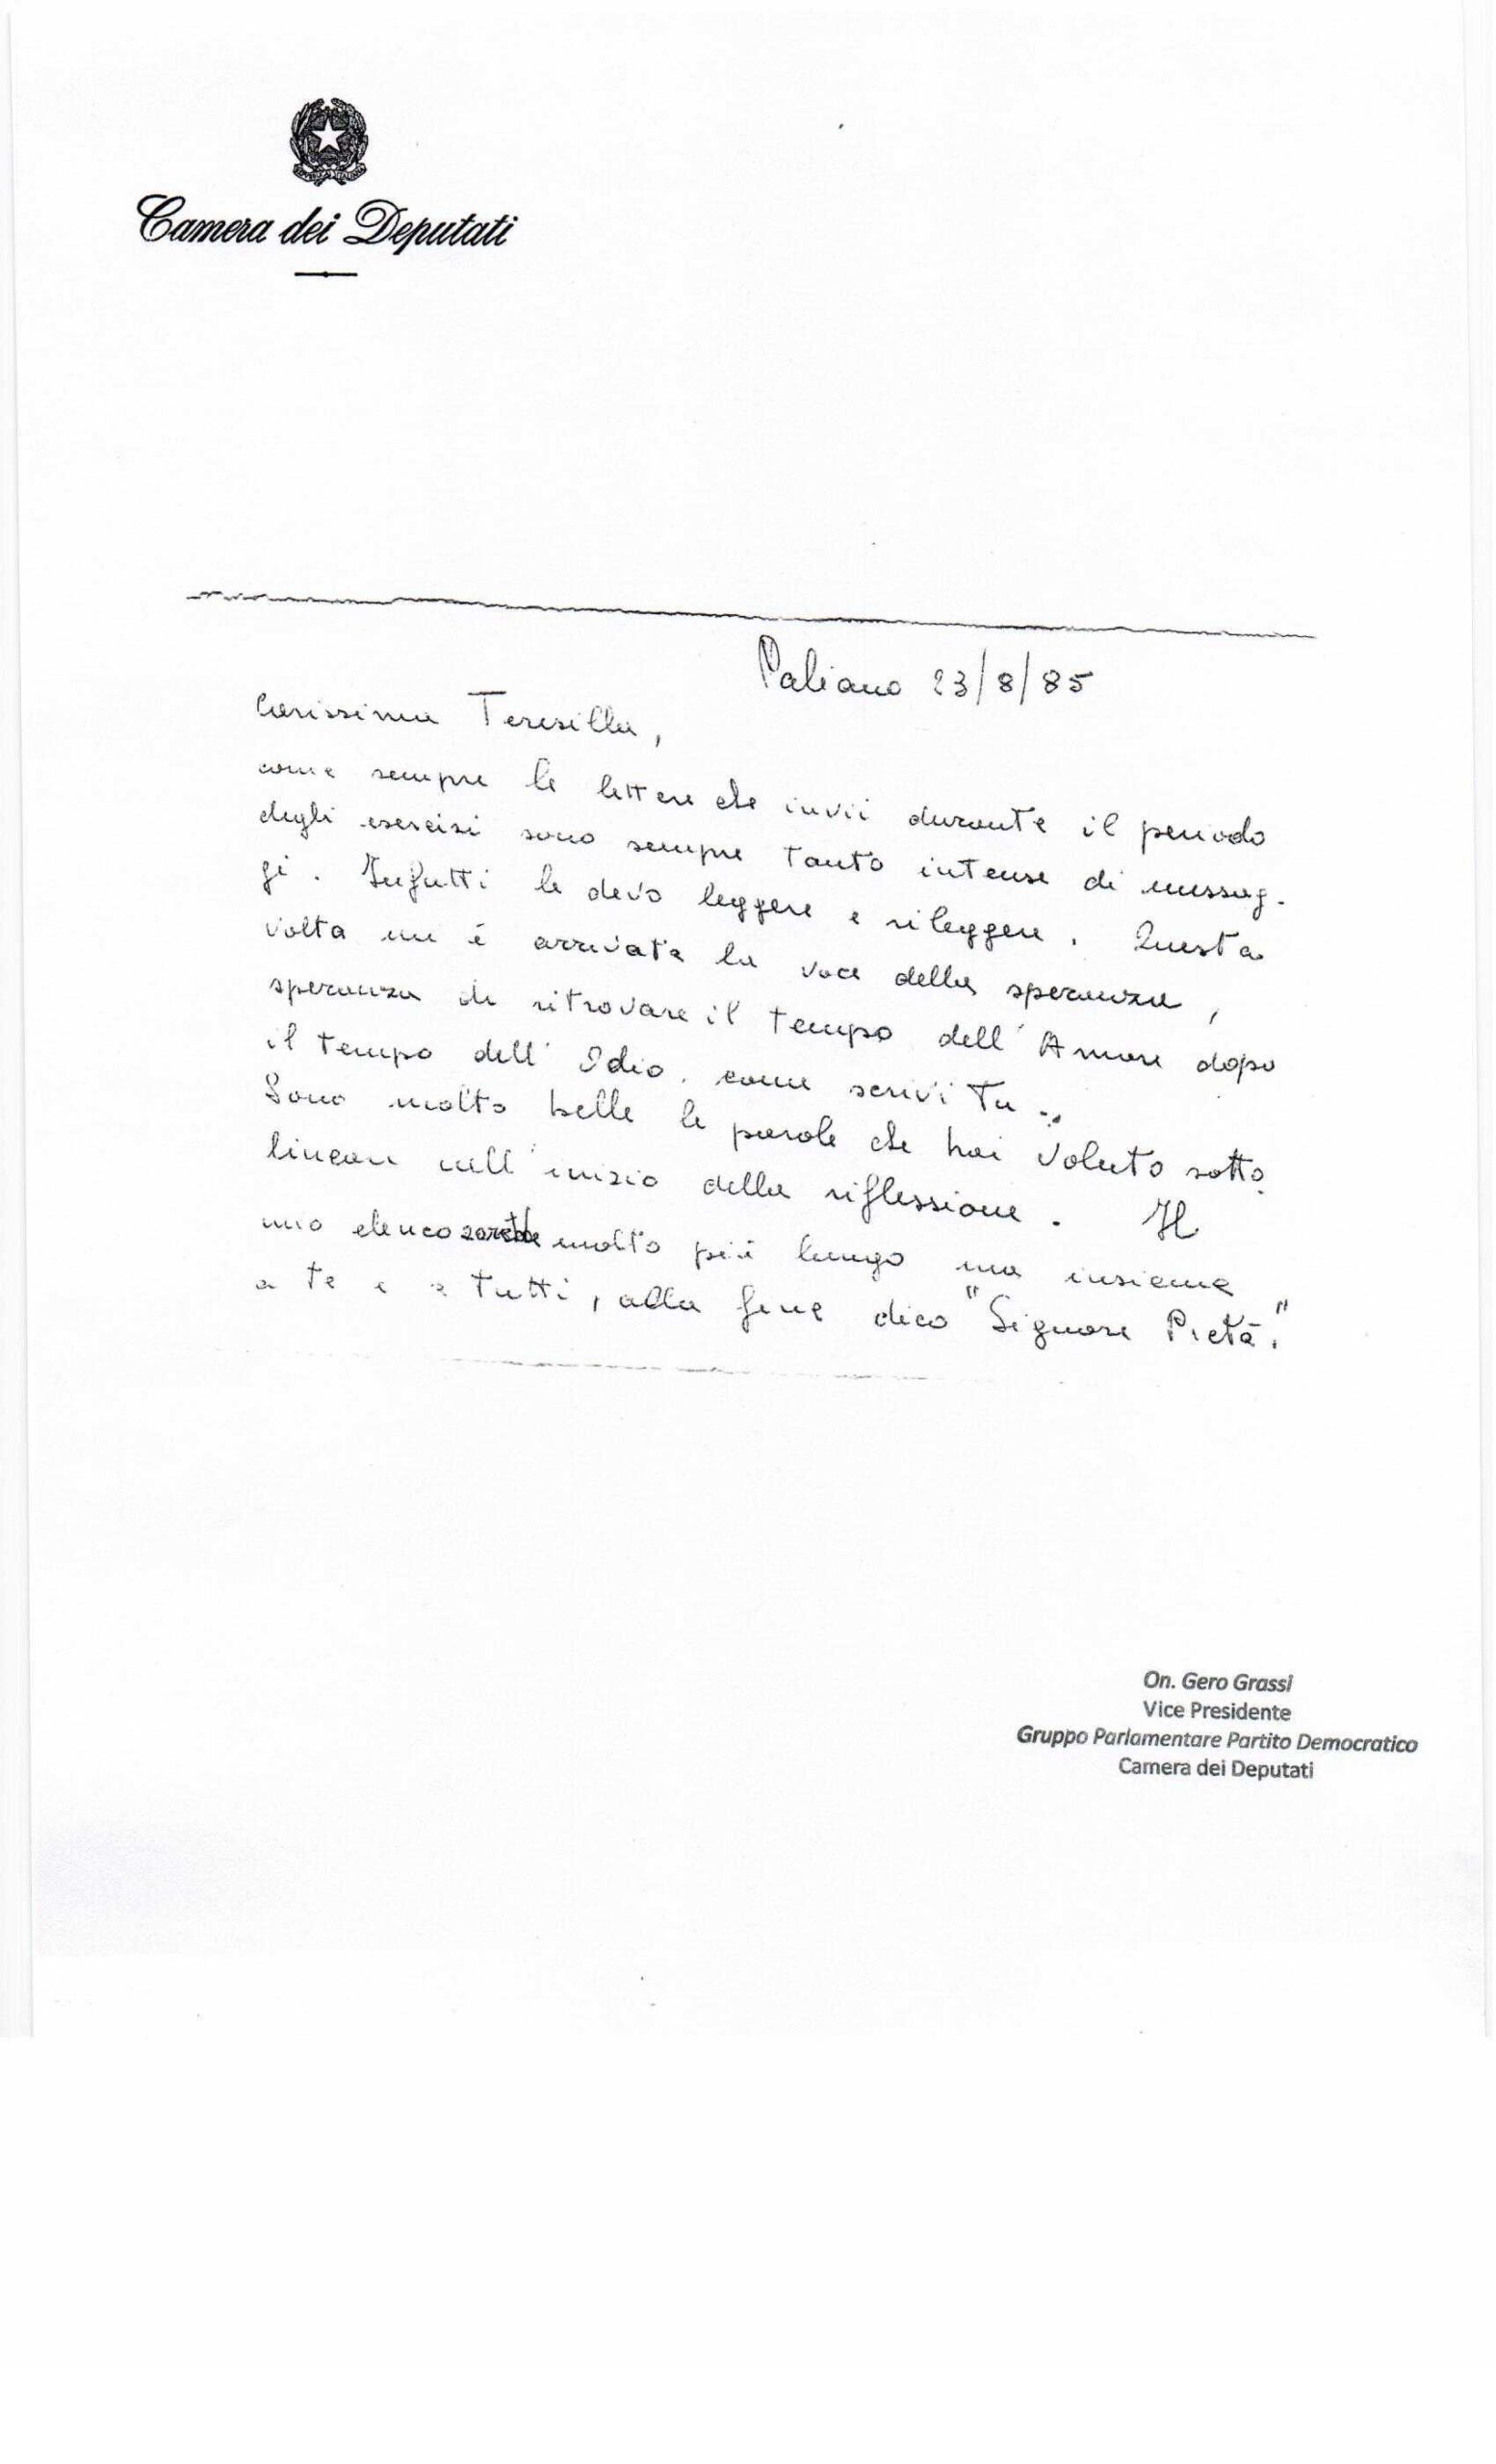 REPVBBLICA ITALIANA
Camera dei Deputati
Paliano 23/8/85
Carissima Teresilla,
come sempre le lettere che invii durante il periodo
degli esercizi sono sempre tanto intense di messag-
gi. Infatti le devo leggere e rileggere. Questa
volta mi è arrivata la voce della speranza,
speranza di ritrovare il tempo dell'Amore dopo
il tempo dell'Odio. come scrivi Tu..
Sono molto belle le parole che hai voluto sotto
lineare nell'inizio della riflessione. Il
mio elenco sarebbe molto più lungo ma insieme
a te e a tutti, alla fine dico "Signore Pietà."
On. Gero Grassi
Vice Presidente
Gruppo Parlamentare Partito Democratico
Camera dei Deputati